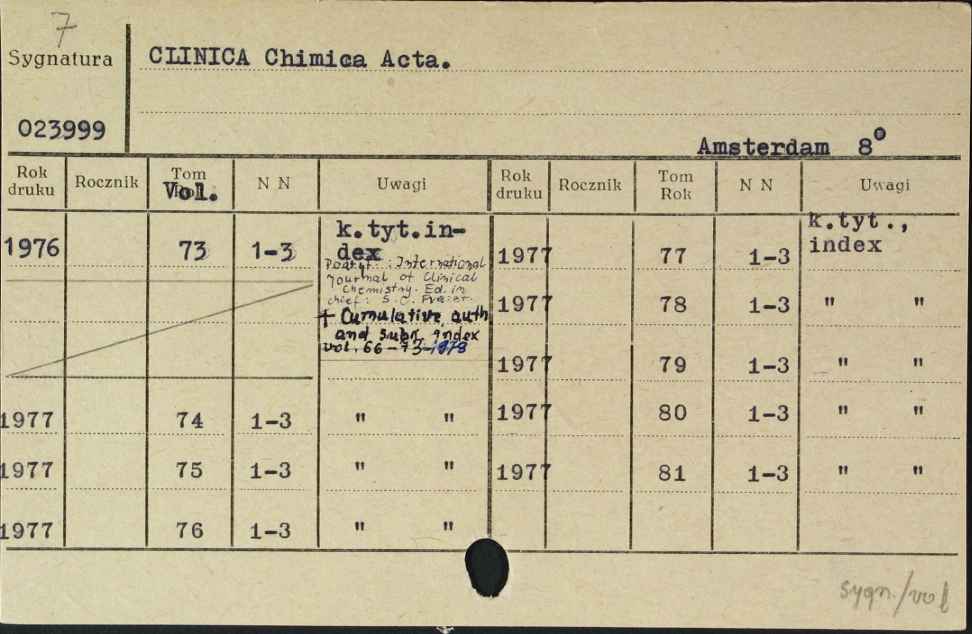 7
Sygnatura CLINICA Chimica Acta.
023999
Amsterdam 8°
Rok druku Rocznik Tom Vol. N N Uwagi Rok druku Rocznik Tom Rok N N Uwagi
1976 73 1-3 k.tyt.in-
dex
Podtyt.: International
Journal of Clinical
Chemistry. Ed. in
chief: S. C. Frazer.
+ Cumulative auth
and subj. index
vol. 66-73
1977 77 1-3 k.tyt.,
index
1977 78 1-3 " "
1977 79 1-3 " "
1977 74 1-3 " " 1977 80 1-3 " "
1977 75 1-3 " " 1977 81 1-3 " "
1977 76 1-3 " "
sygn./vol